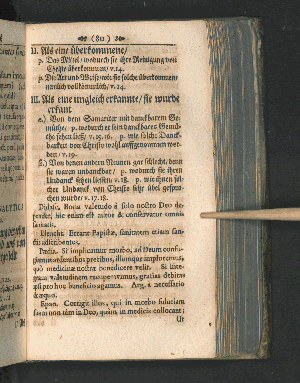 (80)
II. Als eine überkommene/
p. Das Mittel/ wodurch sie ihre Reinigung von
Christo überkommen/ v. 14.
p. Die Art und Weise/ wie sie solche überkommen/
nemlich vollkömmlich/ v. 14.
III. Als eine ungleich erkannte/ sie wurde
erkant
α.) Von dem Samariter mit danckbarem Ge-
müthe/ p. wodurch er sein danckbares Gemü-
the sehen ließ/ v. 15. 16. p. wie solche Danck-
barkeit von Christo wohl auffgenommen wor-
den/ v. 19.
β.) Von denen andern Neunen gar schlecht, denn
sie waren undanckbar/ p. wodurch sie ihren
Undanck sehen liessen/ v. 18. p. wie ihnen sol-
cher Undanck von Christo sehr übel gespro-
chen wurde/ v. 17. 18.
Didasc. Bona valetudo à solo nostro Deo de-
pendet, hic enim est autor & conservator omnis
sanitatis.
Elench. Errant Papistæ, sanitatem etiam san-
ctis adscribentes.
Pædia. Si implicamur morbo, ad Deum confu-
giamus ardentibus precibus, illumque imploremus,
quò medicinæ nostræ benedicere velit. Si inte-
gram valetudinem recuperavimus, gratias debitas
ipsi pro hoc beneficio agamus. Arg. à necessario
& æquo.
Epan. Corrigit illos, qui in morbo fiduciam
suam non tam in Deo, quàm in medicis collocant;
Ut